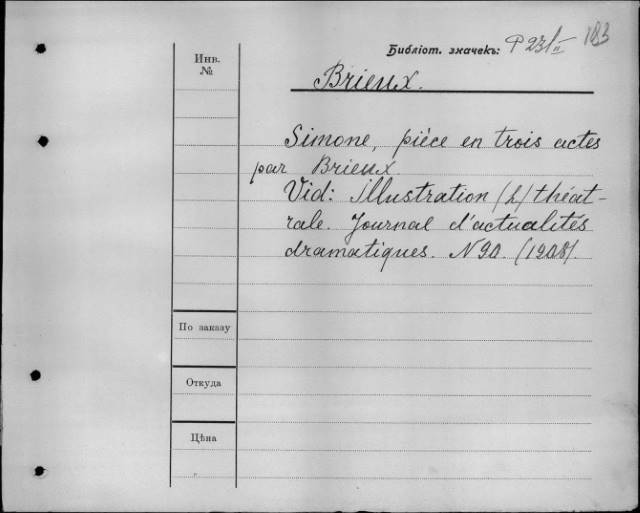 Библіот. значекъ: P 231 II 183
Инв.
№
Brieux.
Simone, piéce en trois actes
par Brieux.
Vid: Illustration (L) théat-
rale. Journal d'actualités
dramatiques. N 90. (1908).
По заказу
Откуда
Цѣна